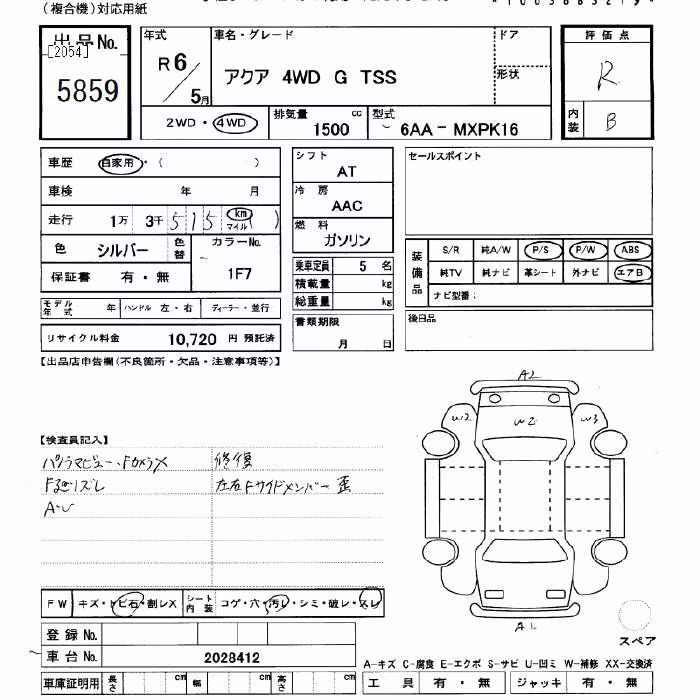 (複合機)対応用紙
出品No.
[2054]
5859
年式
R6/5月
車名・グレード
アクア 4WD G TSS
ドア
形状
評価点
R
内装
B
2WD・4WD
排気量
1500 cc
型式
6AA－MXPK16
車歴 自家用・( )
車検 年 月
走行 1万 3千 515 km マイル ( )
色 シルバー 色替
カラーNo.
1F7
保証書 有・無
モデル年式 年 ハンドル 左・右 ディーラー・並行
リサイクル料金 10,720 円 預託済
シフト
AT
冷房
AAC
燃料
ガソリン
乗車定員 5 名
積載量 kg
総重量 kg
書類期限
月 日
セールスポイント
装備品
S/R 純A/W P/S P/W ABS
純TV 純ナビ 革シート 外ナビ エアB
ナビ型番：
後日品
【出品店申告欄(不良箇所・欠品・注意事項等)】
【検査員記入】
パノラマビュー・FカメラX
修復
左右Fサイドメンバー 歪
A2
W2
W2
W3
A1
FW キズ・トビ石・割レX シート内装 コゲ・穴・汚レ・シミ・破レ・スレ
登録No.
車台No. 2028412
車庫証明用 長さ cm 幅 cm 高さ cm
スペア
A-キズ C-腐食 E-エクボ S-サビ U-凹ミ W-補修 XX-交換済
工具 有・無 ジャッキ 有・無